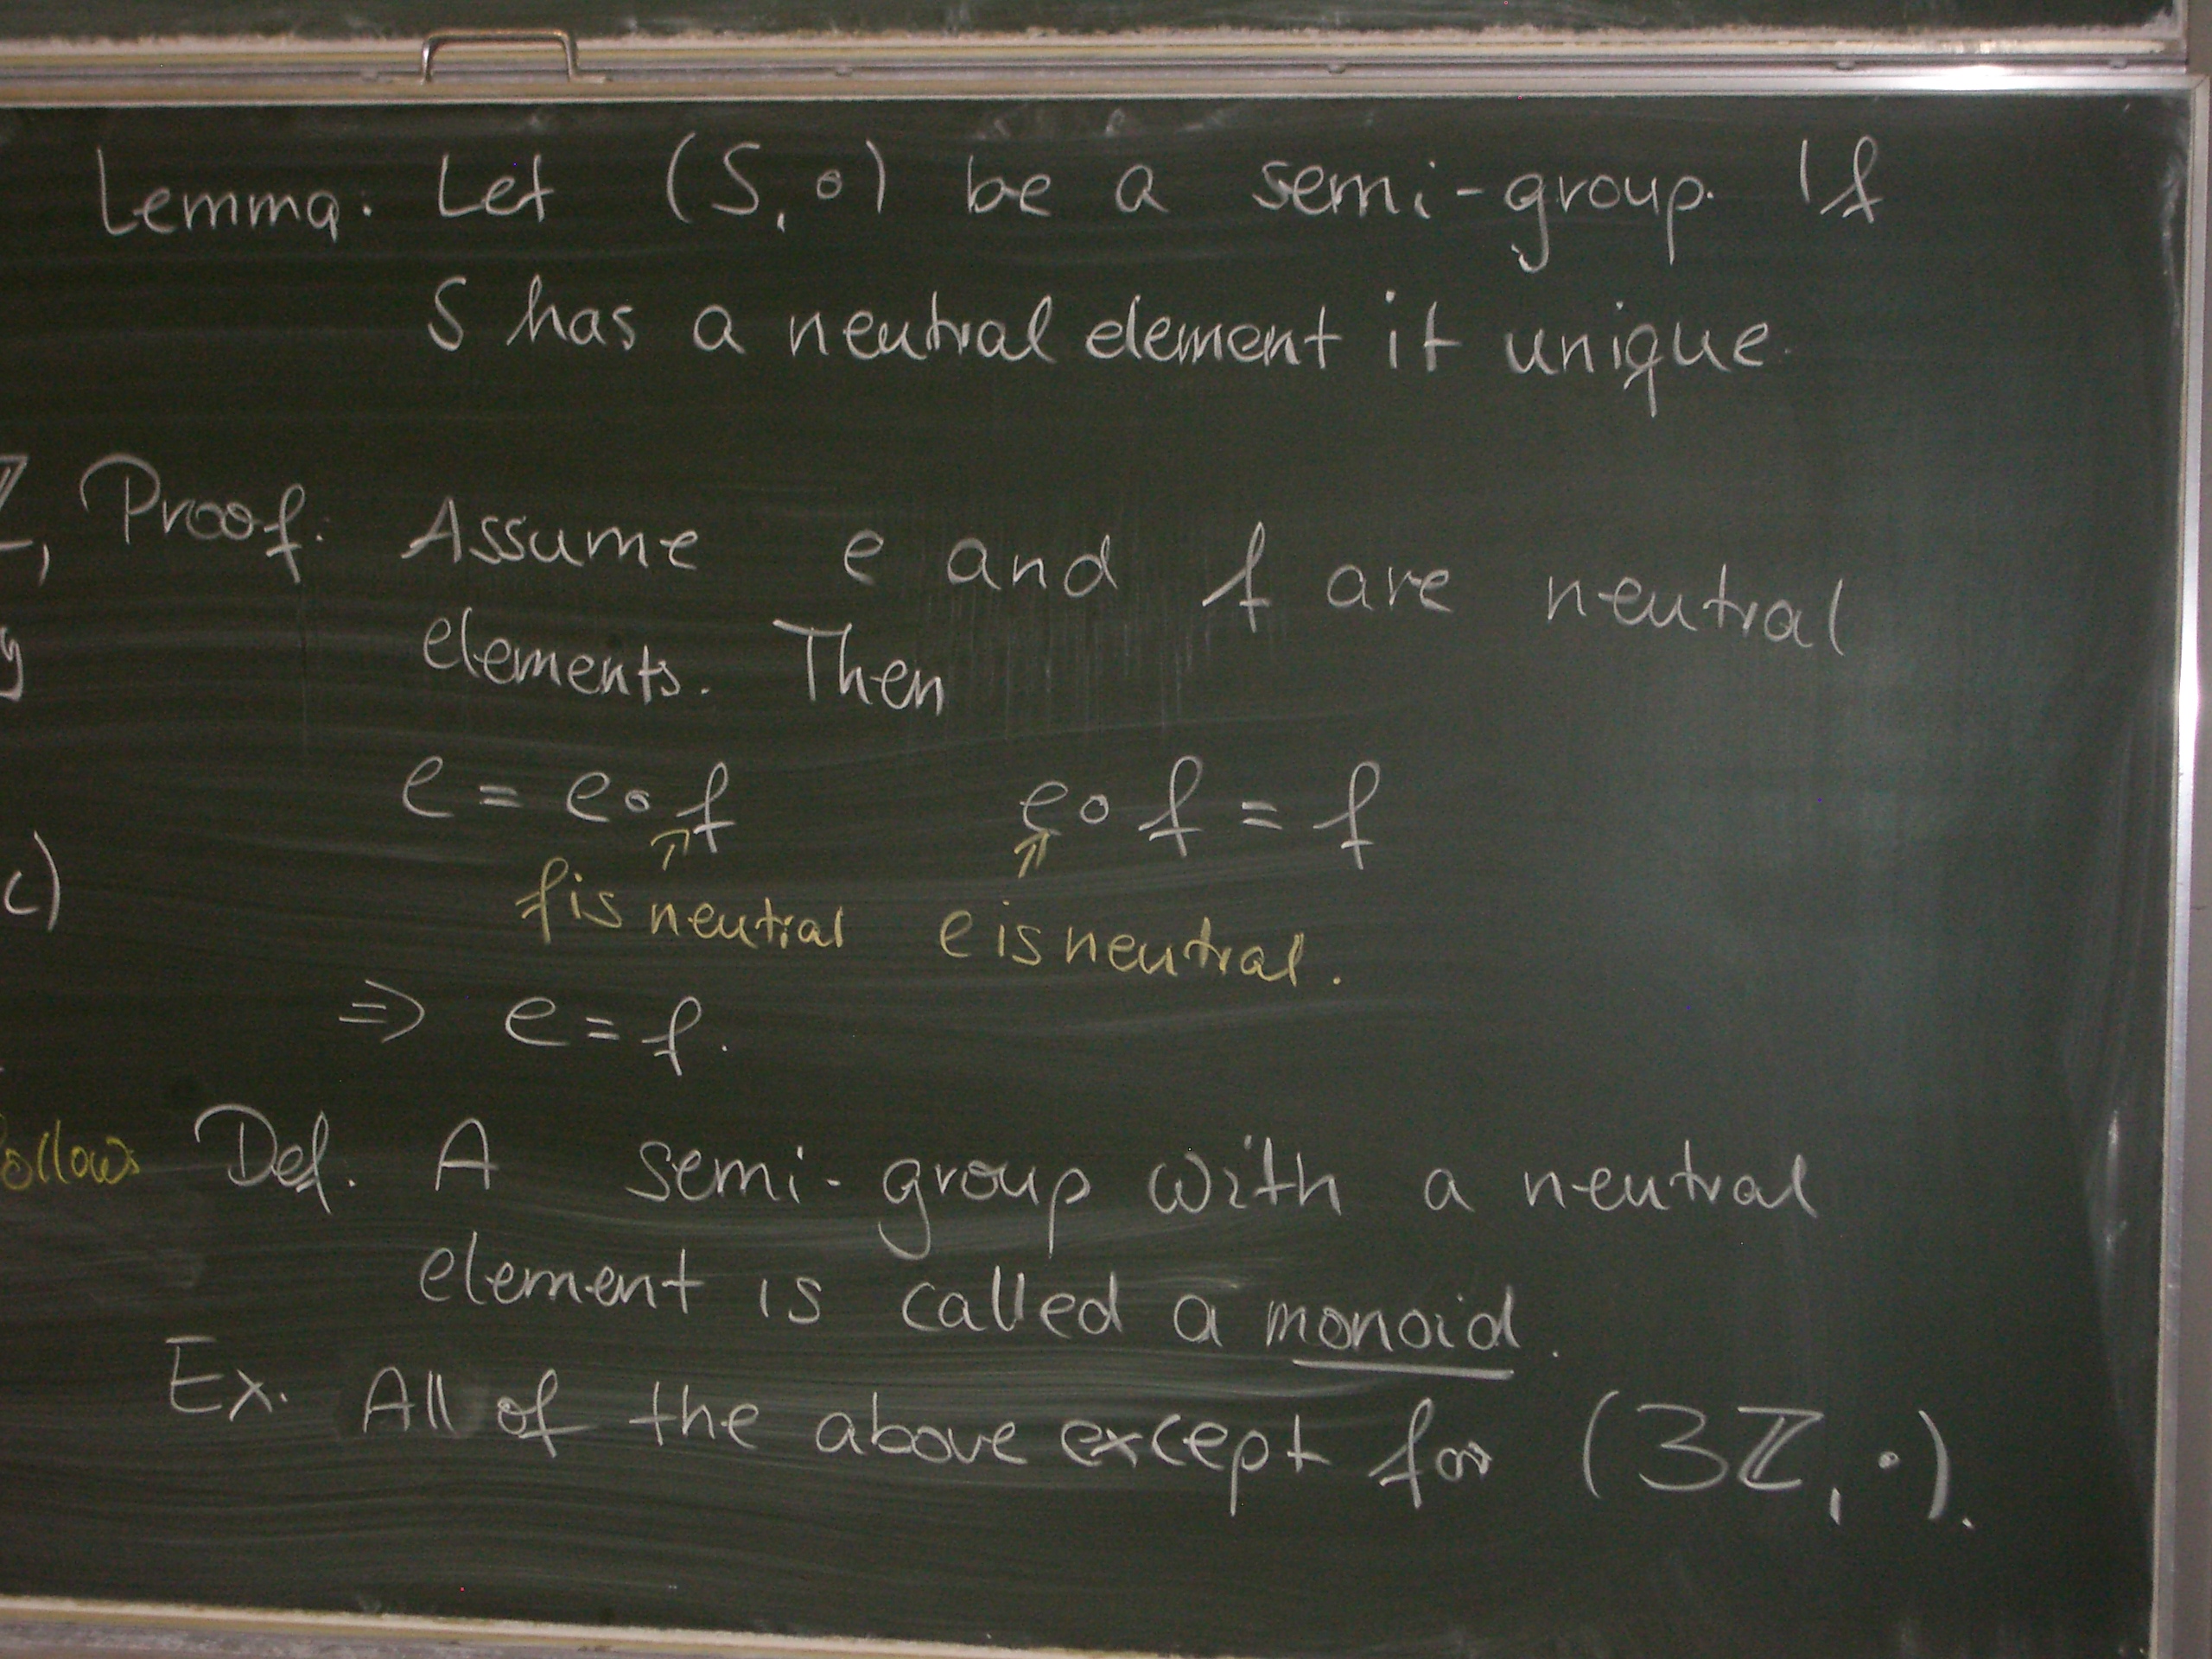 Lemma: Let (S, ∘) be a semi-group. If
S has a neutral element it unique.
ℤ, Proof: Assume e and f are neutral
y elements. Then
e = e∘f e∘f = f
c)
f is neutral e is neutral.
⇒ e = f.
ollows Def. A semi-group with a neutral
element is called a monoid.
Ex. All of the above except for (3ℤ, ·).